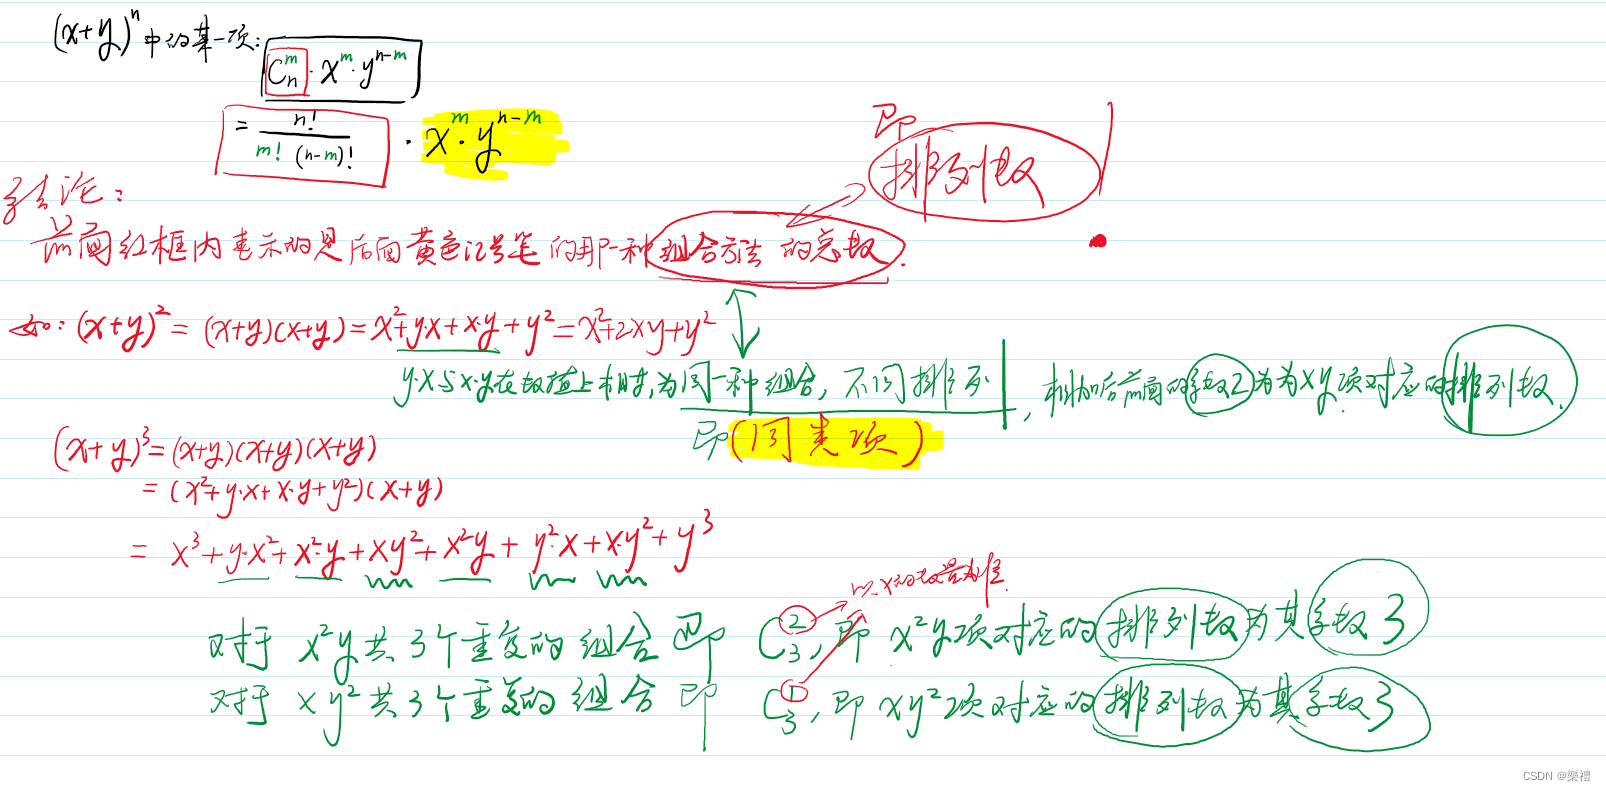 (x+y)^n 中的某一项:
C_n^m · x^m · y^{n-m}
= n! / m! (n-m)! · x^m · y^{n-m}
即
排列数
结论:
前面红框内表示的是后面黄色记号笔的那一种组合方法的总数.
如: (x+y)^2 = (x+y)(x+y) = x^2+y·x+x·y+y^2 = x^2+2xy+y^2
y·x与x·y在数值上相等,为同一种组合, 不同排列, 相加后前面的系数2为为xy项对应的排列数.
即(同类项)
(x+y)^3 = (x+y)(x+y)(x+y)
= (x^2+y·x+x·y+y^2)(x+y)
= x^3+y·x^2+x^2·y+xy^2+x^2y+y^2·x+x·y^2+y^3
以x的数量为准
对于 x^2y共3个重复的组合 即 C_3^2, 即 x^2y项对应的排列数为其系数3
对于 xy^2共3个重复的组合 即 C_3^1, 即 xy^2项对应的排列数为其系数3
CSDN @樂禮